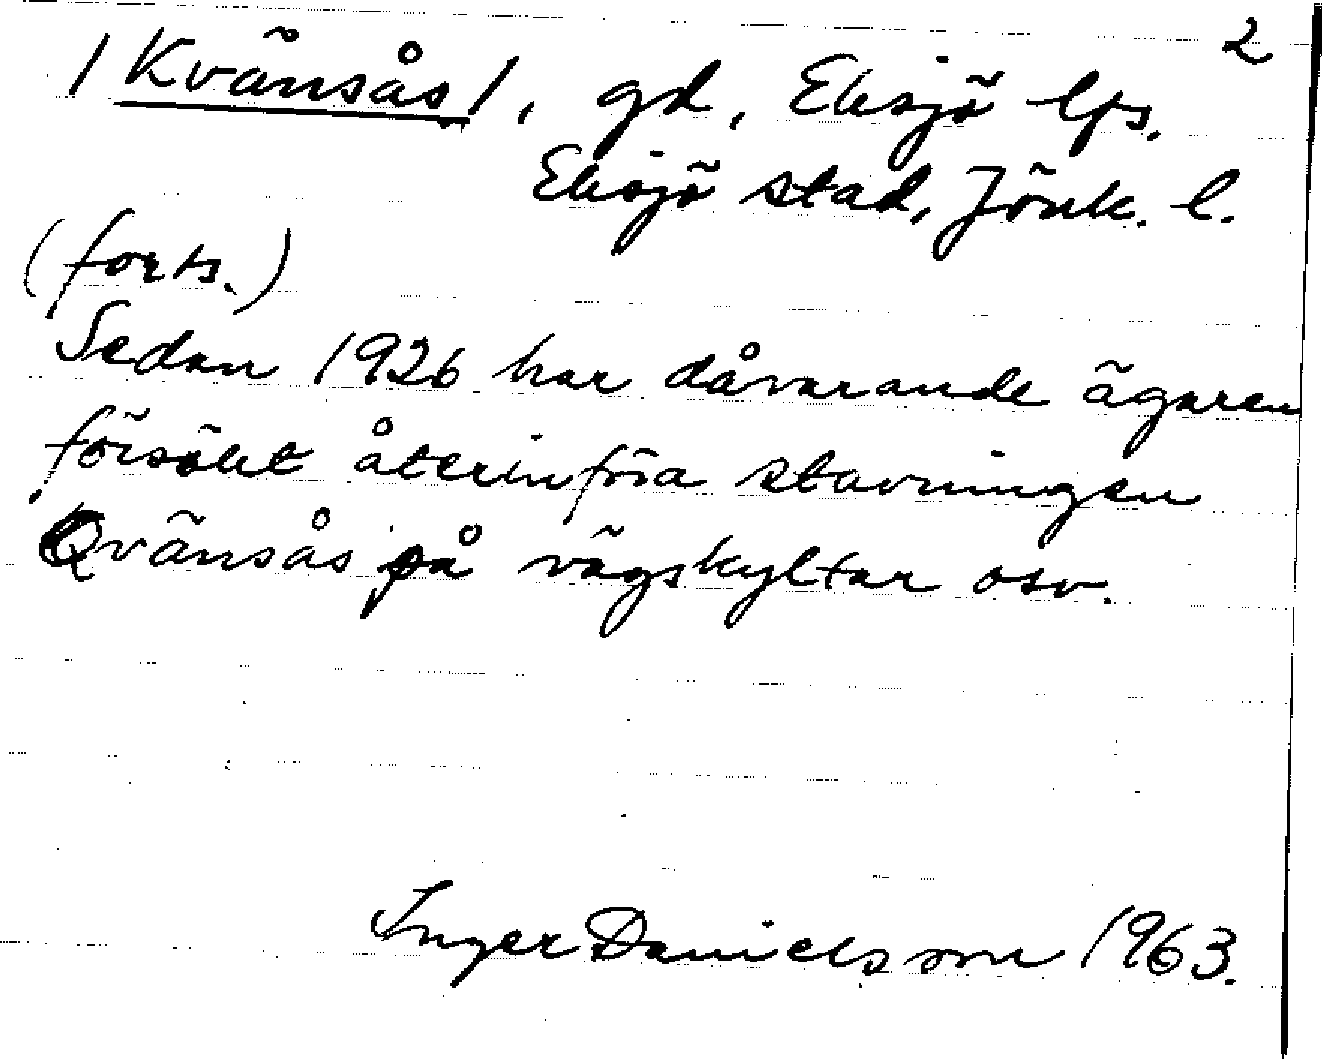 2
/Kvänsås/, gd, Eksjö lfs.
Eksjö stad, Jönk. l.
(forts.)
Sedan 1926 har dåvarande ägaren
försökt återinföra stavningen
Qvänsås på vägskyltar osv.
Inger Danielsson 1963.